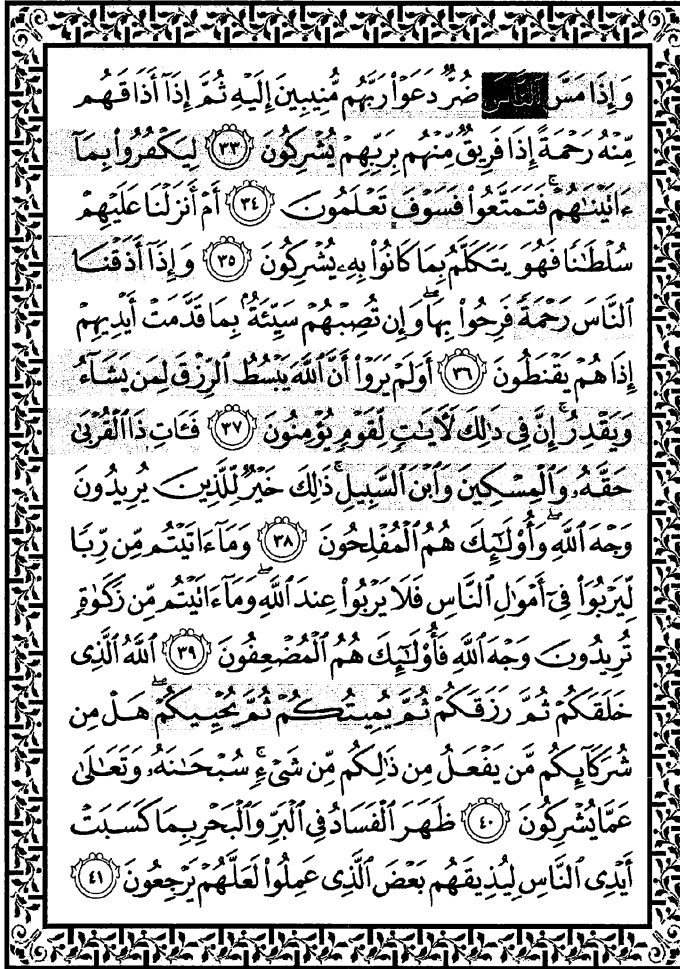 وَإِذَا مَسَّ ٱلنَّاسَ ضُرٌّ دَعَوْا۟ رَبَّهُم مُّنِيبِينَ إِلَيْهِ ثُمَّ إِذَآ أَذَاقَهُم
مِّنْهُ رَحْمَةً إِذَا فَرِيقٌ مِّنْهُم بِرَبِّهِمْ يُشْرِكُونَ ٣٣ لِيَكْفُرُوا۟ بِمَآ
ءَاتَيْنَٰهُمْ ۚ فَتَمَتَّعُوا۟ فَسَوْفَ تَعْلَمُونَ ٣٤ أَمْ أَنزَلْنَا عَلَيْهِمْ
سُلْطَٰنًا فَهُوَ يَتَكَلَّمُ بِمَا كَانُوا۟ بِهِۦ يُشْرِكُونَ ٣٥ وَإِذَآ أَذَقْنَا
ٱلنَّاسَ رَحْمَةً فَرِحُوا۟ بِهَا ۖ وَإِن تُصِبْهُمْ سَيِّئَةٌۢ بِمَا قَدَّمَتْ أَيْدِيهِمْ
إِذَا هُمْ يَقْنَطُونَ ٣٦ أَوَلَمْ يَرَوْا۟ أَنَّ ٱللَّهَ يَبْسُطُ ٱلرِّزْقَ لِمَن يَشَآءُ
وَيَقْدِرُ ۚ إِنَّ فِى ذَٰلِكَ لَءَايَٰتٍ لِّقَوْمٍ يُؤْمِنُونَ ٣٧ فَـَٔاتِ ذَا ٱلْقُرْبَىٰ
حَقَّهُۥ وَٱلْمِسْكِينَ وَٱبْنَ ٱلسَّبِيلِ ۚ ذَٰلِكَ خَيْرٌ لِّلَّذِينَ يُرِيدُونَ
وَجْهَ ٱللَّهِ ۖ وَأُو۟لَٰٓئِكَ هُمُ ٱلْمُفْلِحُونَ ٣٨ وَمَآ ءَاتَيْتُم مِّن رِّبًا
لِّيَرْبُوَا۟ فِىٓ أَمْوَٰلِ ٱلنَّاسِ فَلَا يَرْبُوا۟ عِندَ ٱللَّهِ ۖ وَمَآ ءَاتَيْتُم مِّن زَكَوٰةٍ
تُرِيدُونَ وَجْهَ ٱللَّهِ فَأُو۟لَٰٓئِكَ هُمُ ٱلْمُضْعِفُونَ ٣٩ ٱللَّهُ ٱلَّذِى
خَلَقَكُمْ ثُمَّ رَزَقَكُمْ ثُمَّ يُمِيتُكُمْ ثُمَّ يُحْيِيكُمْ ۖ هَلْ مِن
شُرَكَآئِكُم مَّن يَفْعَلُ مِن ذَٰلِكُم مِّن شَىْءٍ ۚ سُبْحَٰنَهُۥ وَتَعَٰلَىٰ
عَمَّا يُشْرِكُونَ ٤٠ ظَهَرَ ٱلْفَسَادُ فِى ٱلْبَرِّ وَٱلْبَحْرِ بِمَا كَسَبَتْ
أَيْدِى ٱلنَّاسِ لِيُذِيقَهُم بَعْضَ ٱلَّذِى عَمِلُوا۟ لَعَلَّهُمْ يَرْجِعُونَ ٤١